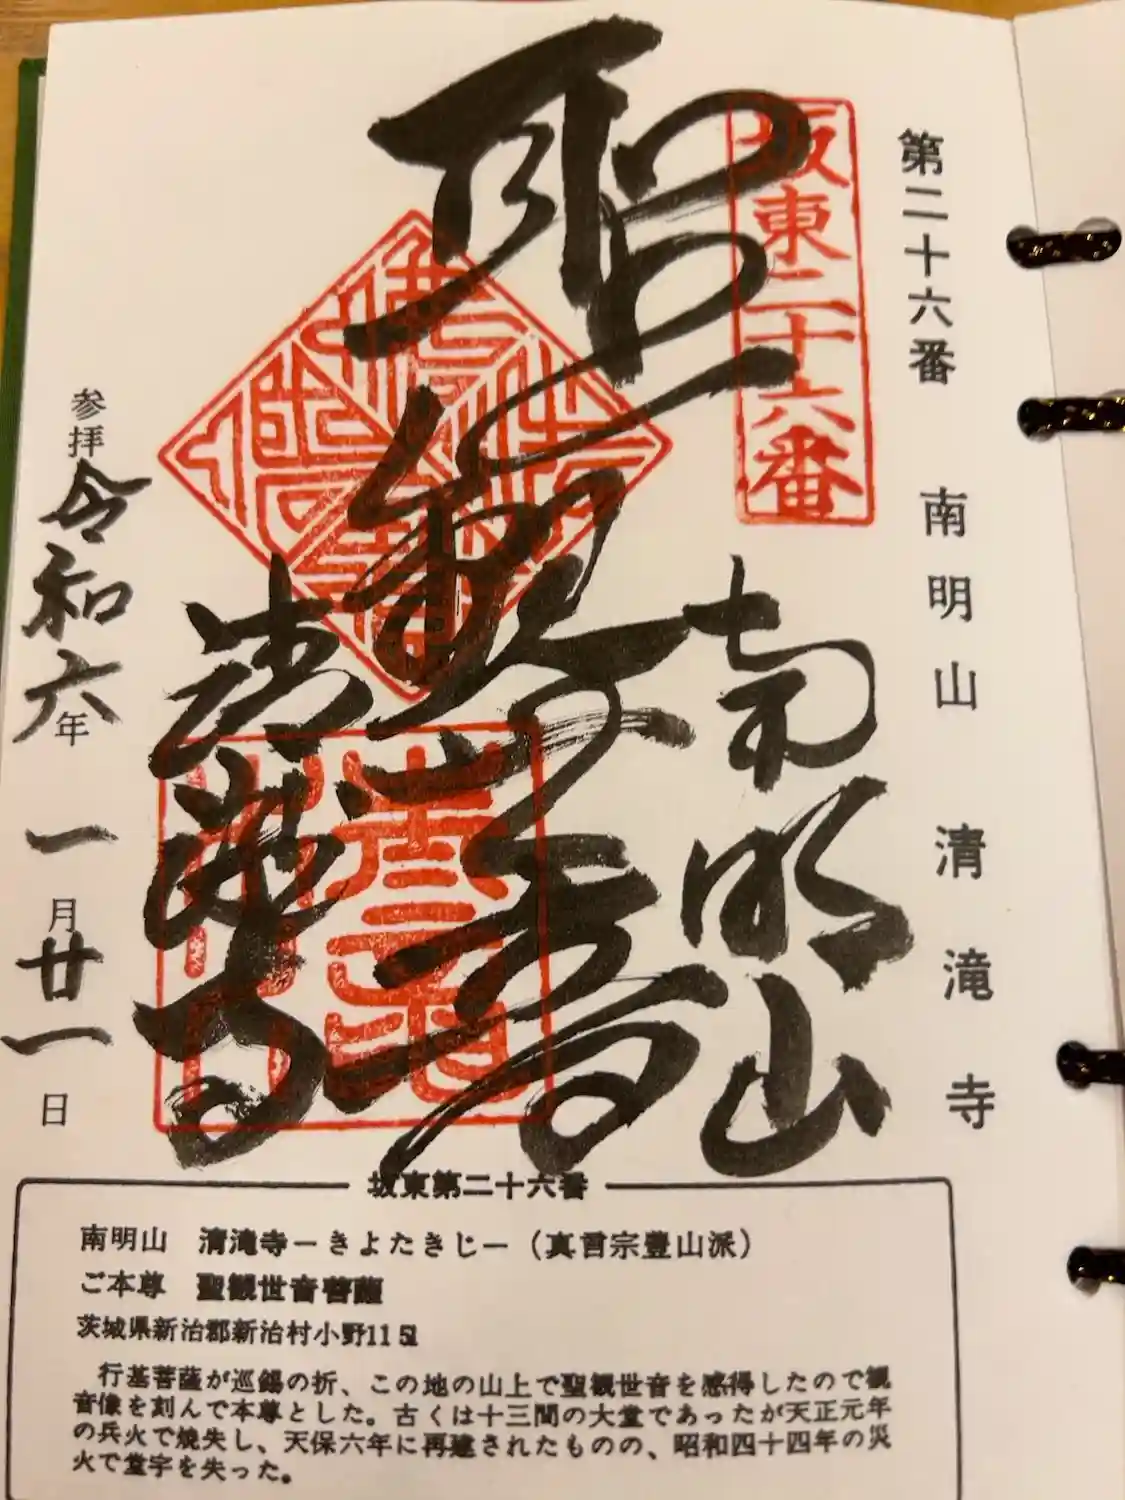 第二十六番 南明山 清滝寺
坂東二十六番
南明山
聖観世音
清滝寺
参拝 令和六年 一月廿一日
坂東第二十六番
南明山 清滝寺ーきよたきじー(真言宗豊山派)
ご本尊 聖観世音菩薩
茨城県新治郡新治村小野1151
行基菩薩が巡錫の折、この地の山上で聖観世音を感得したので観
音像を刻んで本尊とした。古くは十三間の大堂であったが天正元年
の兵火で焼失し、天保六年に再建されたものの、昭和四十四年の災
火で堂宇を失った。